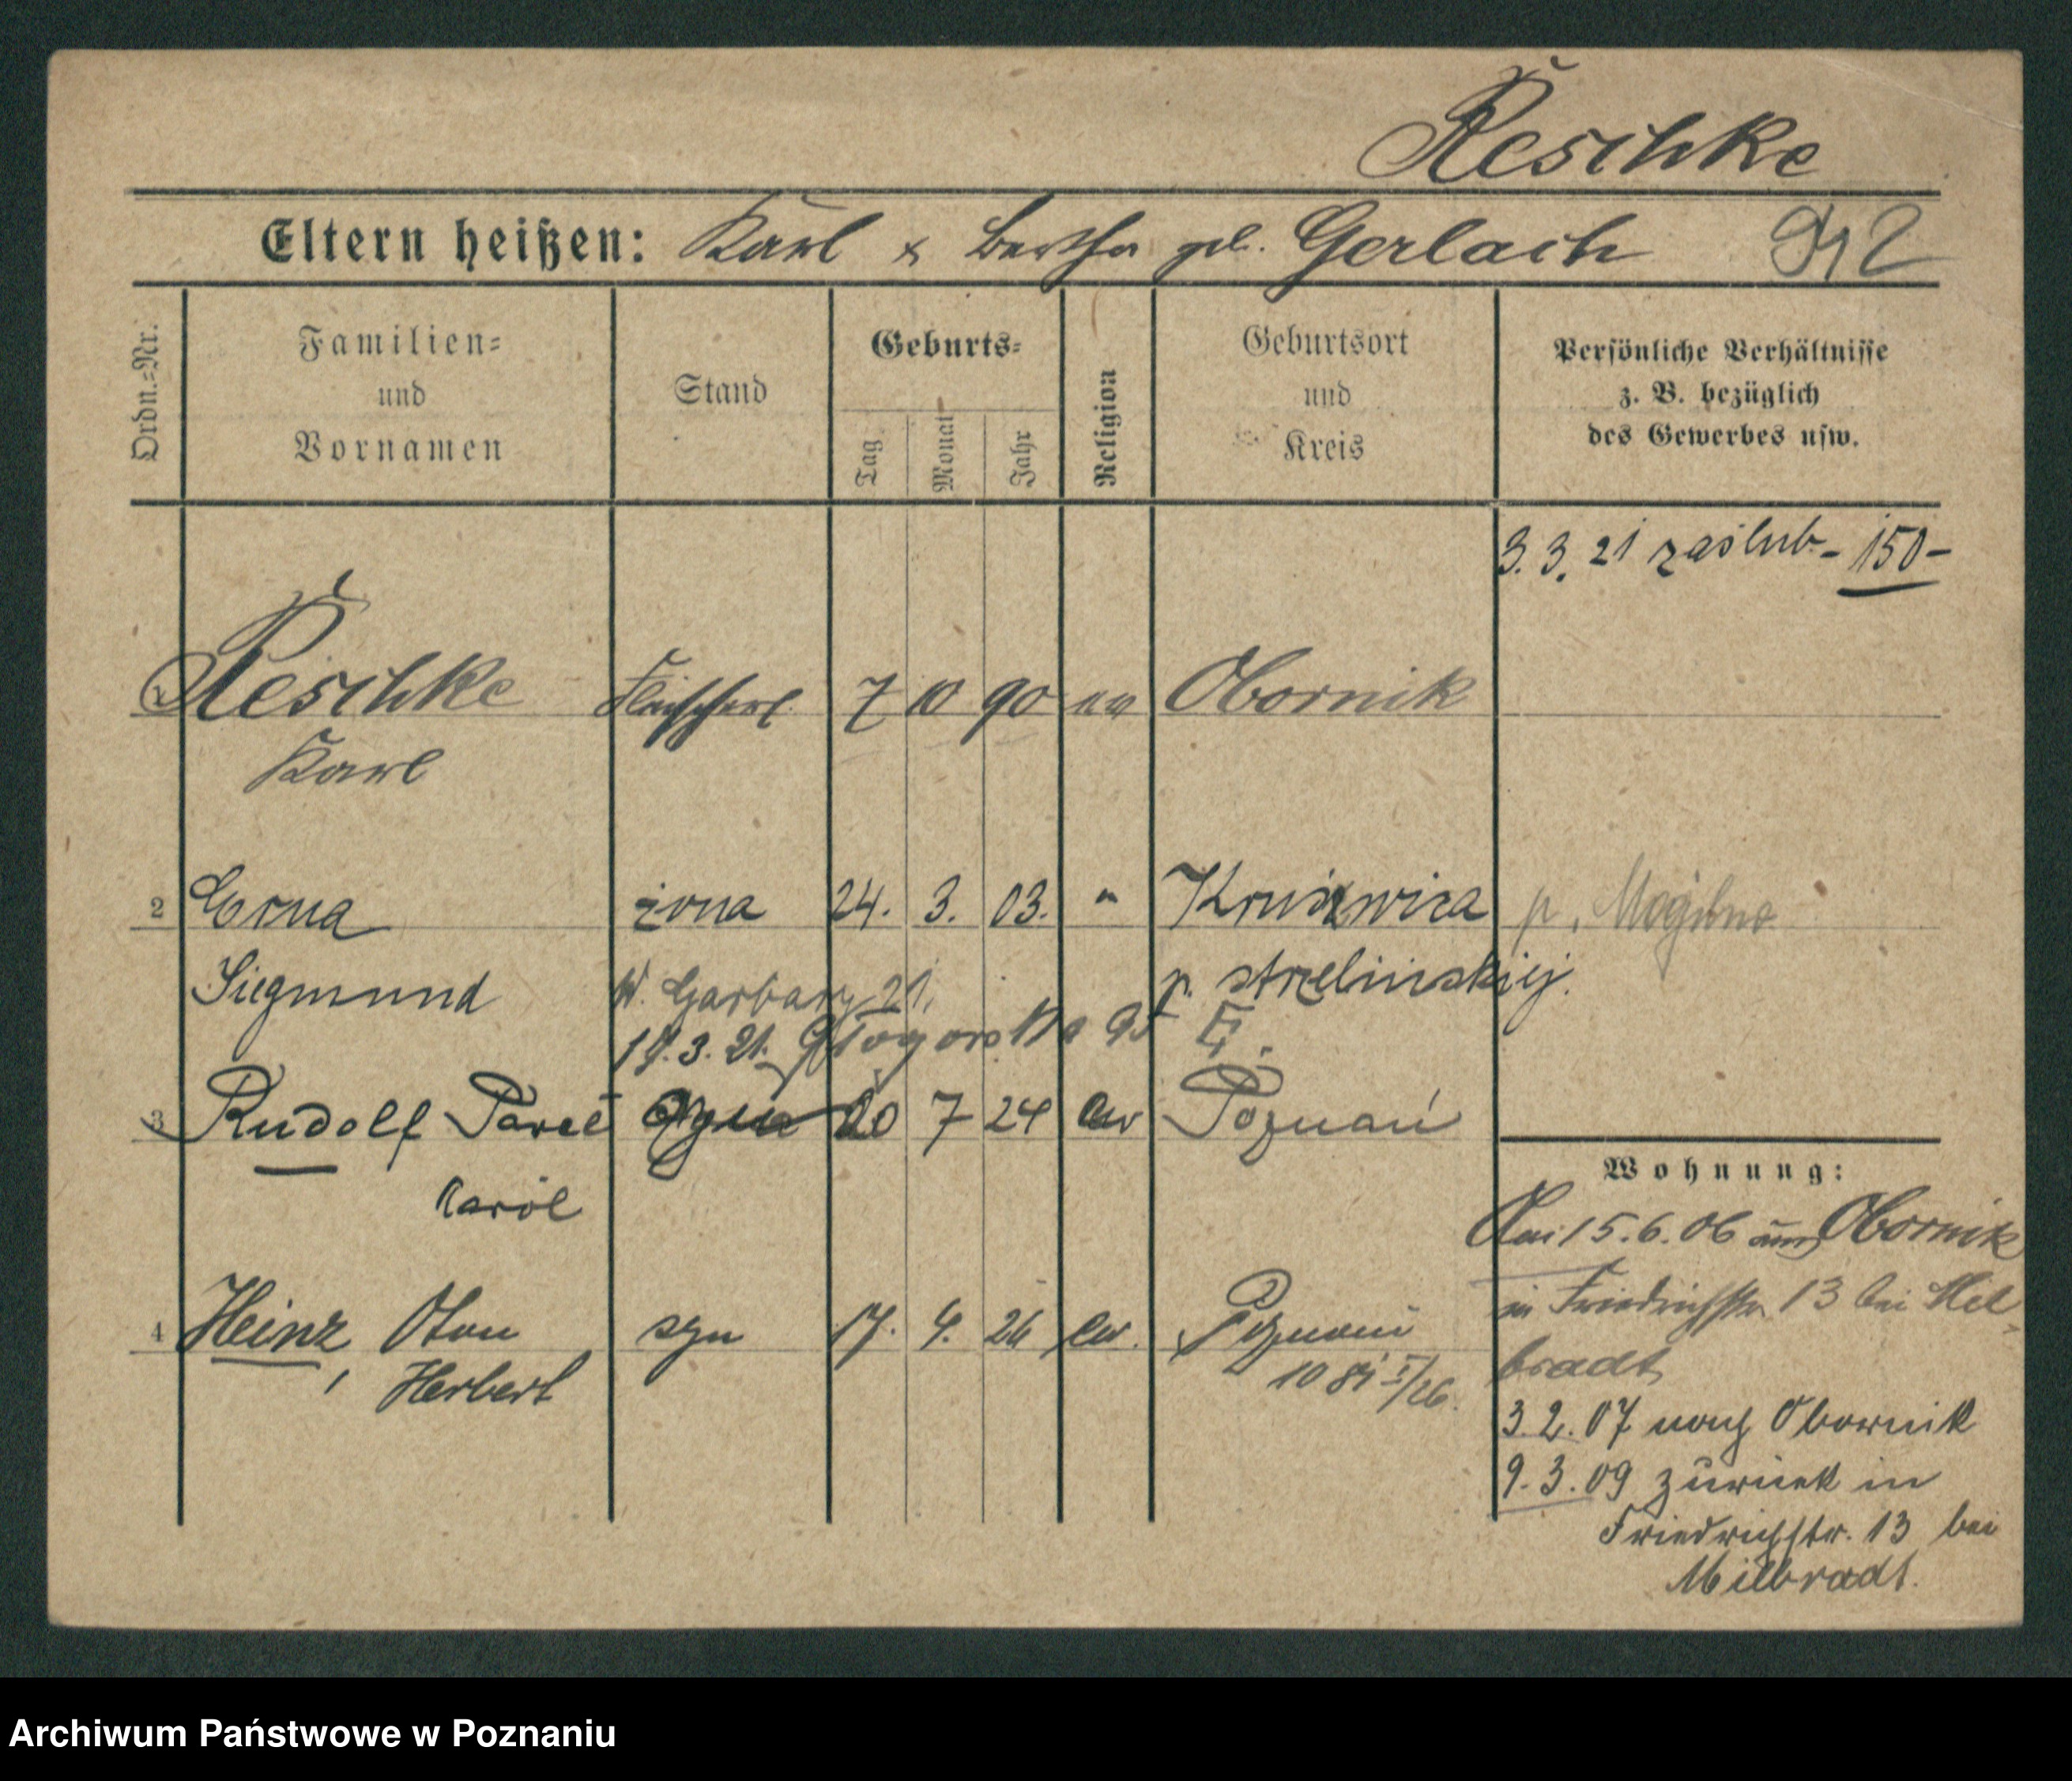 Reschke
Eltern heißen: Karl & Bertha geb. Gerlach
Ordn.=Nr.
Familien=
und
Vornamen
Stand
Geburts=
Tag
Monat
Jahr
Religion
Geburtsort
und
Kreis
Persönliche Verhältnisse
z. B. bezüglich
des Gewerbes usw.
3. 3. 21 zaślub - 150 -
1 Reschke Fleischerl. 7 10 90 ev Obornik
Karl
2 Erna żona 24. 3. 03. " Kruszwica p. Mogilno
Siegmund W. Garbary 21. p. strzelińskiej.
3. 21.
3 Rudolf Paweł 20 7 24 ew Poznań
Karól
4 Heinz, Oton syn 17. 4. 26 ew. Poznań
Herbert
Wohnung:
15. 6. 06 aus Obornik
in Friedrichstr 13 bei Mil
bradt
3. 2. 07 nach Obornik
9. 3. 09 zurück in
Friedrichstr. 13 bei
Milbradt.
Archiwum Państwowe w Poznaniu